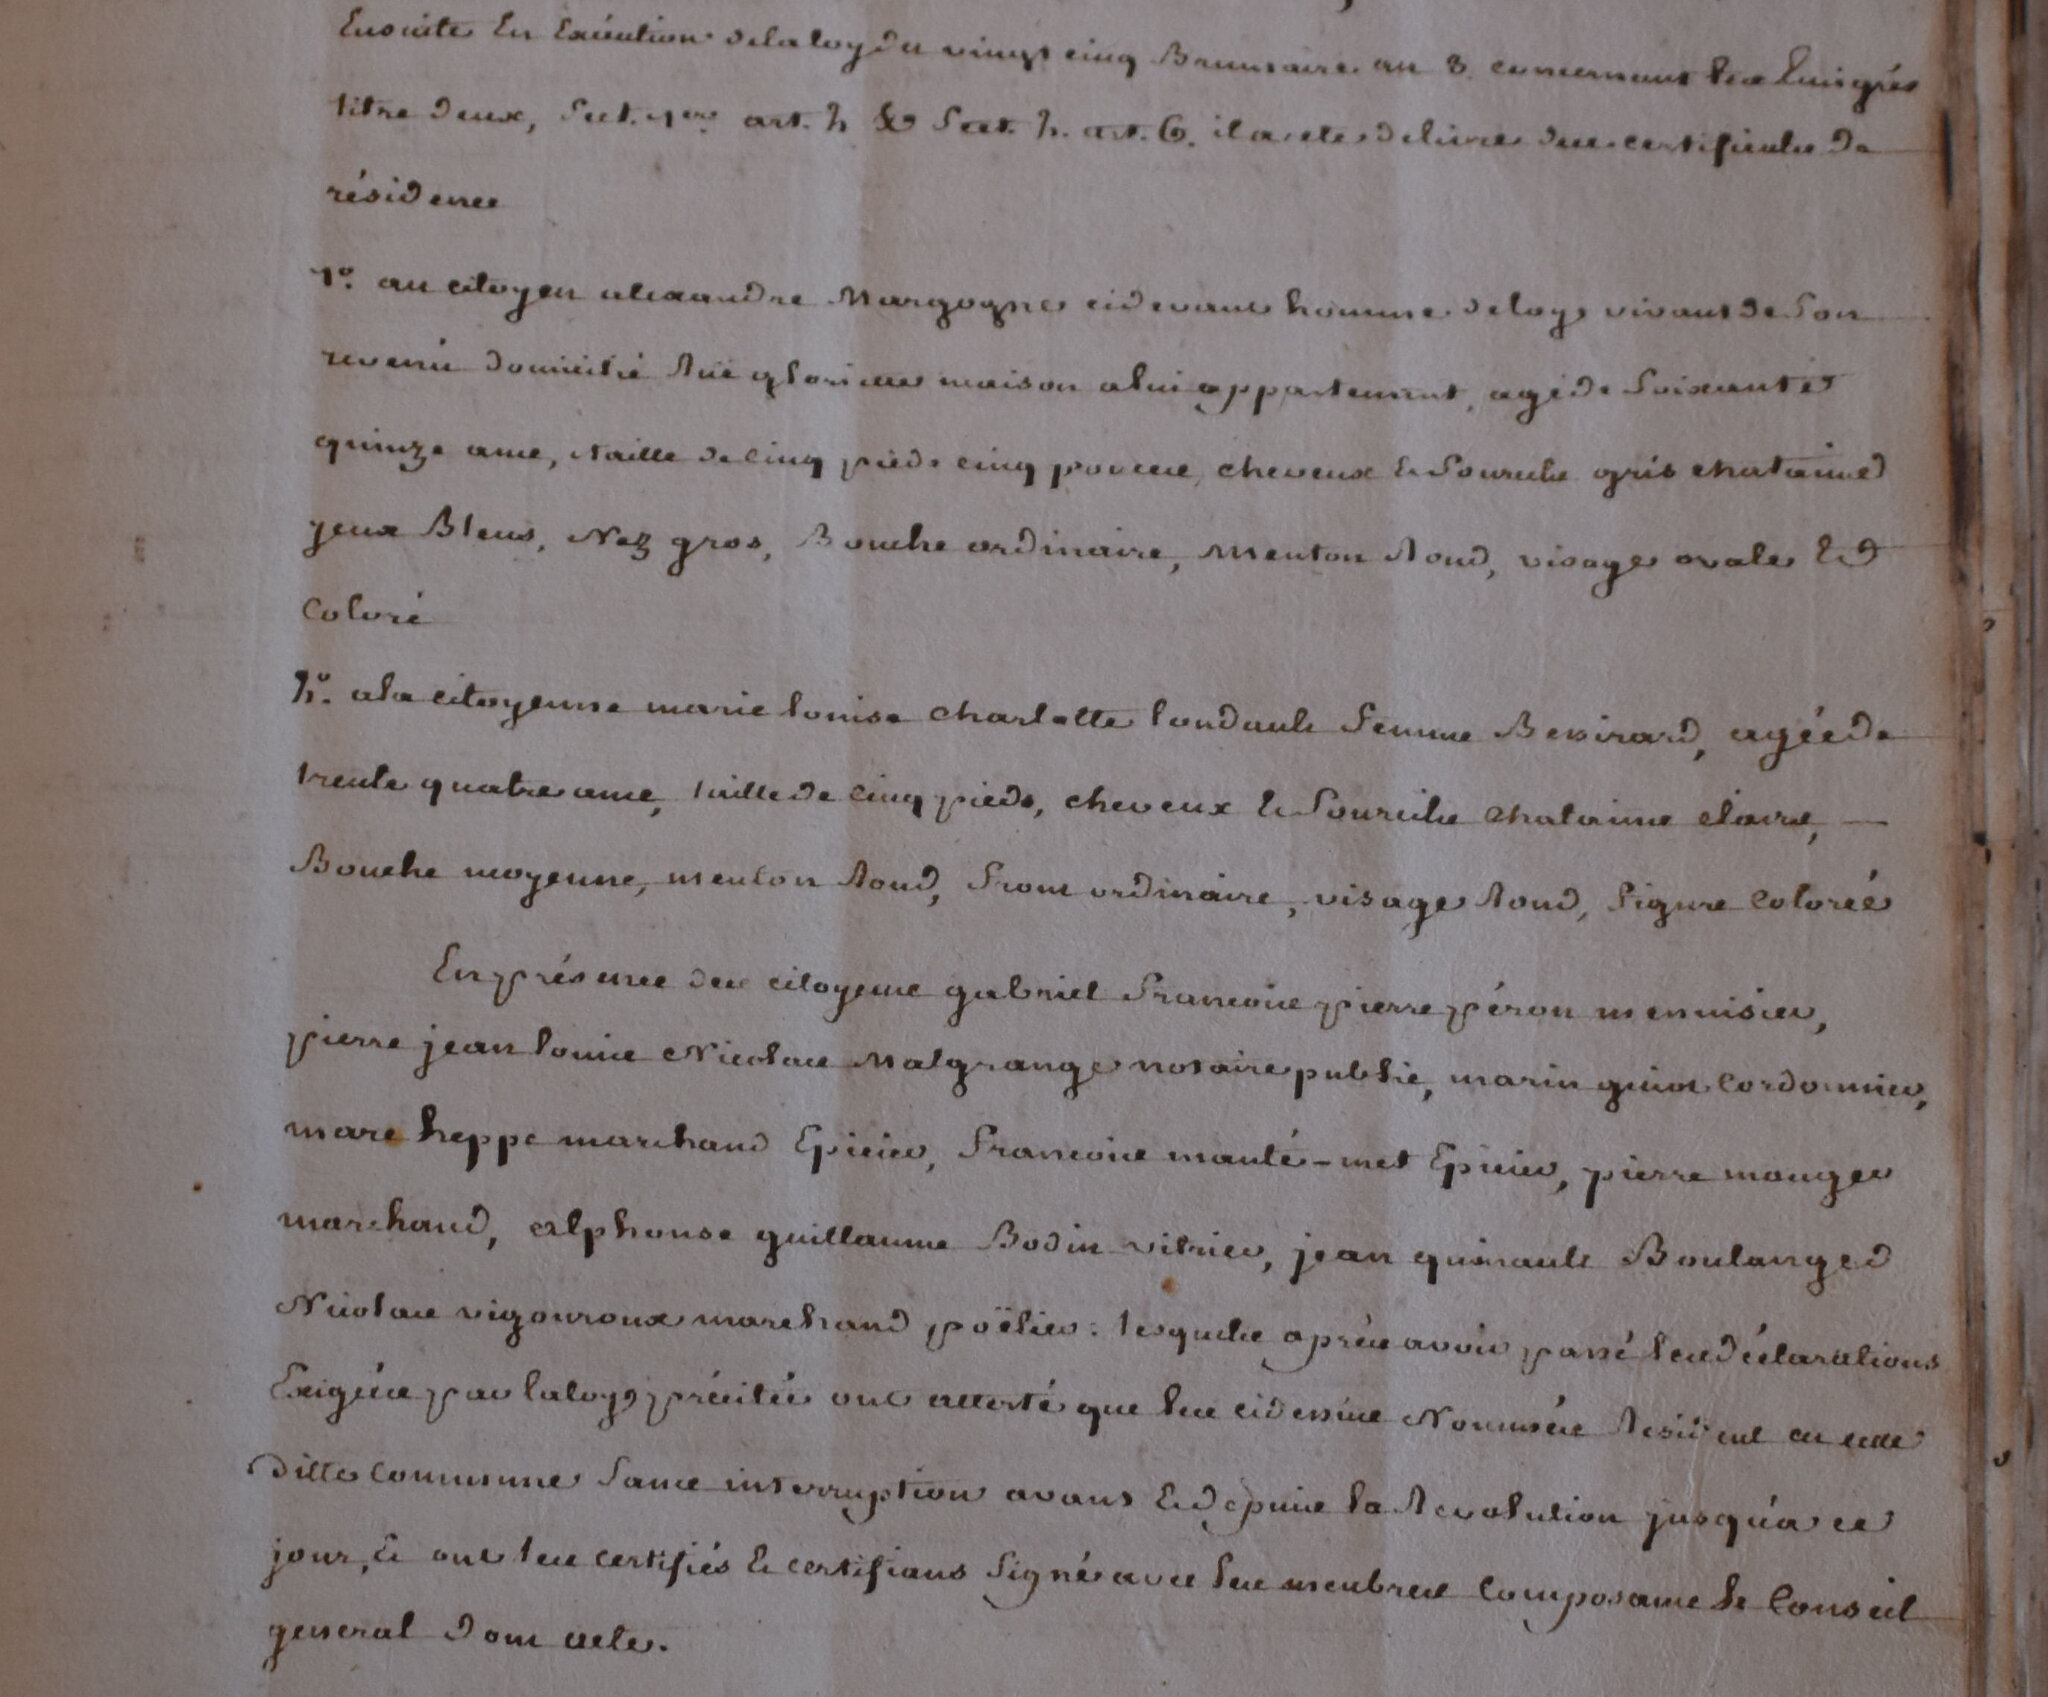 Ensuite En Exécution de la loy du vingt cinq Brumaire an 3. concernant les Emigrés
titre deux, Sect. 1ere art. 2 & Sect. 2. art. 6. il a ete délivré des certificats de
résidence
1º. au citoyen alexandre Margogne cidevant homme de loy vivant de Son
revenu domicilié Rue glorieuse maison a lui appartenant, agé de Soixante
quinze ans, taille de cinq pieds cinq pouces, cheveux & Sourcils gris chatains
yeux Bleus, Nez gros, Bouche ordinaire, Menton Rond, visage ovale Et
Coloré
2º. a la citoyenne marie louise Charlotte londault femme Benirard, agée de
trente quatre ans, taille de cinq pieds, cheveux & Sourcils Chatains clairs, —
Bouche moyenne, menton Rond, front ordinaire, visage Rond, figure Colorée
En présence des citoyens gabriel francois pierre péron menuisier,
pierre jean louis Nicolas Malgrange notaire public, marin guiot Cordonnier,
marc heppe marchand Epicier, francois manté-met Epicier, pierre mouger
marchand, alphonse guillaume Bodin vitrier, jean quinault Boulanger
Nicolas vigouroux marchand poëlier: lesquels après avoir passé les déclarations
Exigées par la loy précitée ont attesté que les cidessus Nommés Resident en cette
ditte Commune Sans interruption avant Et depuis la Revolution jusqu'a ce
jour, & ont les certifiés & certifians Signé avec les membres Composans le Conseil
general dont acte.